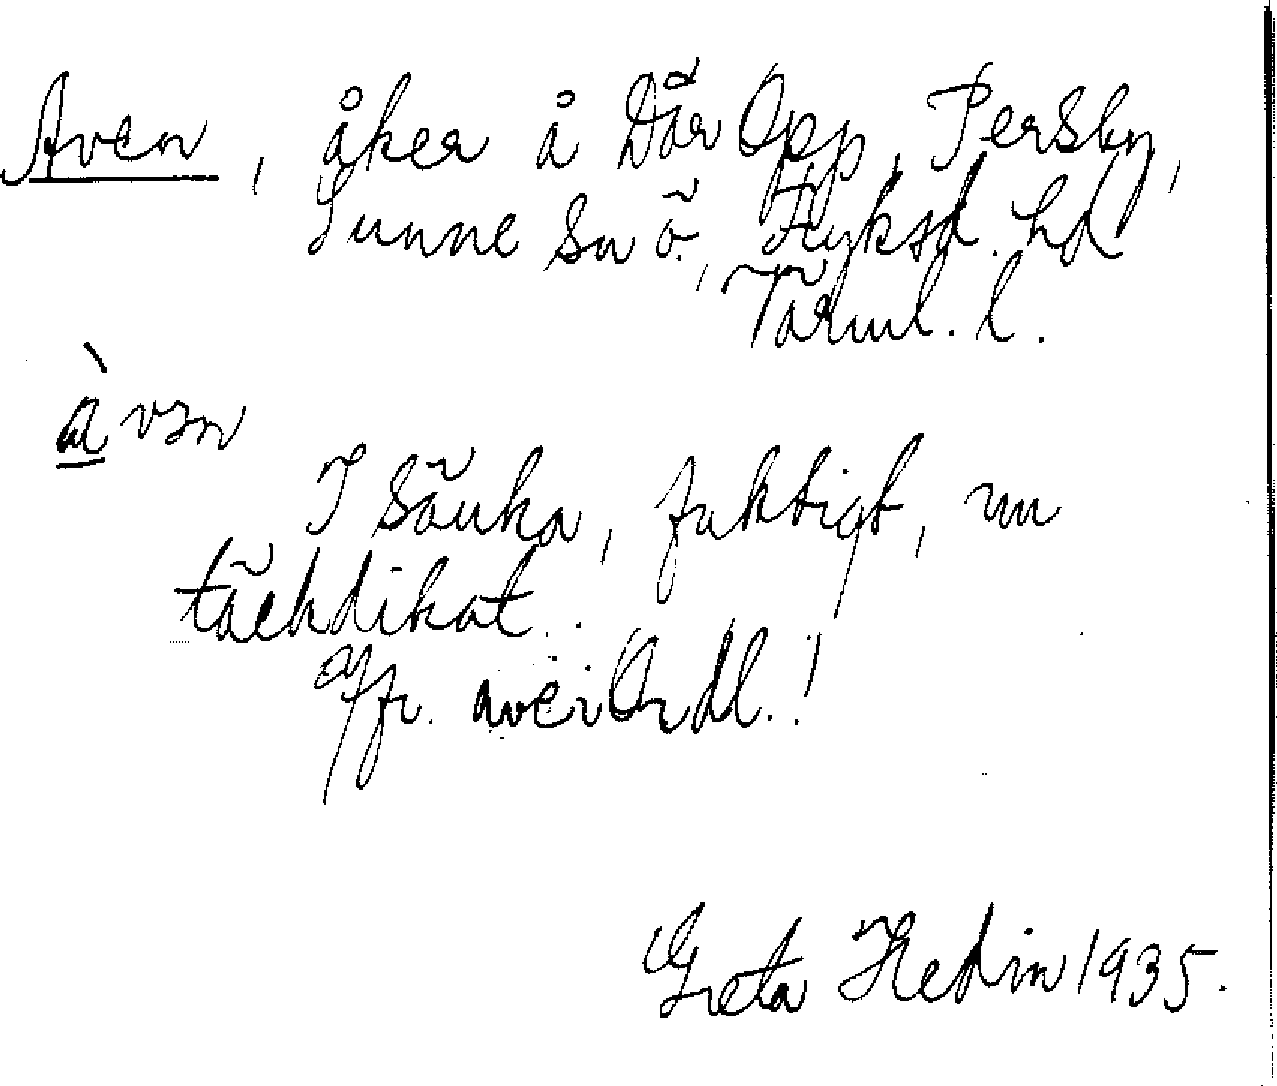 Aven, åker å Där Opp, Persby,
Sunne sn ö., Fryksd. hd
Värml. l.
àvən
I sänka, fuktigt, nu
täckdikat.
Jfr. aveiOrdl.!
Greta Hedin 1935.